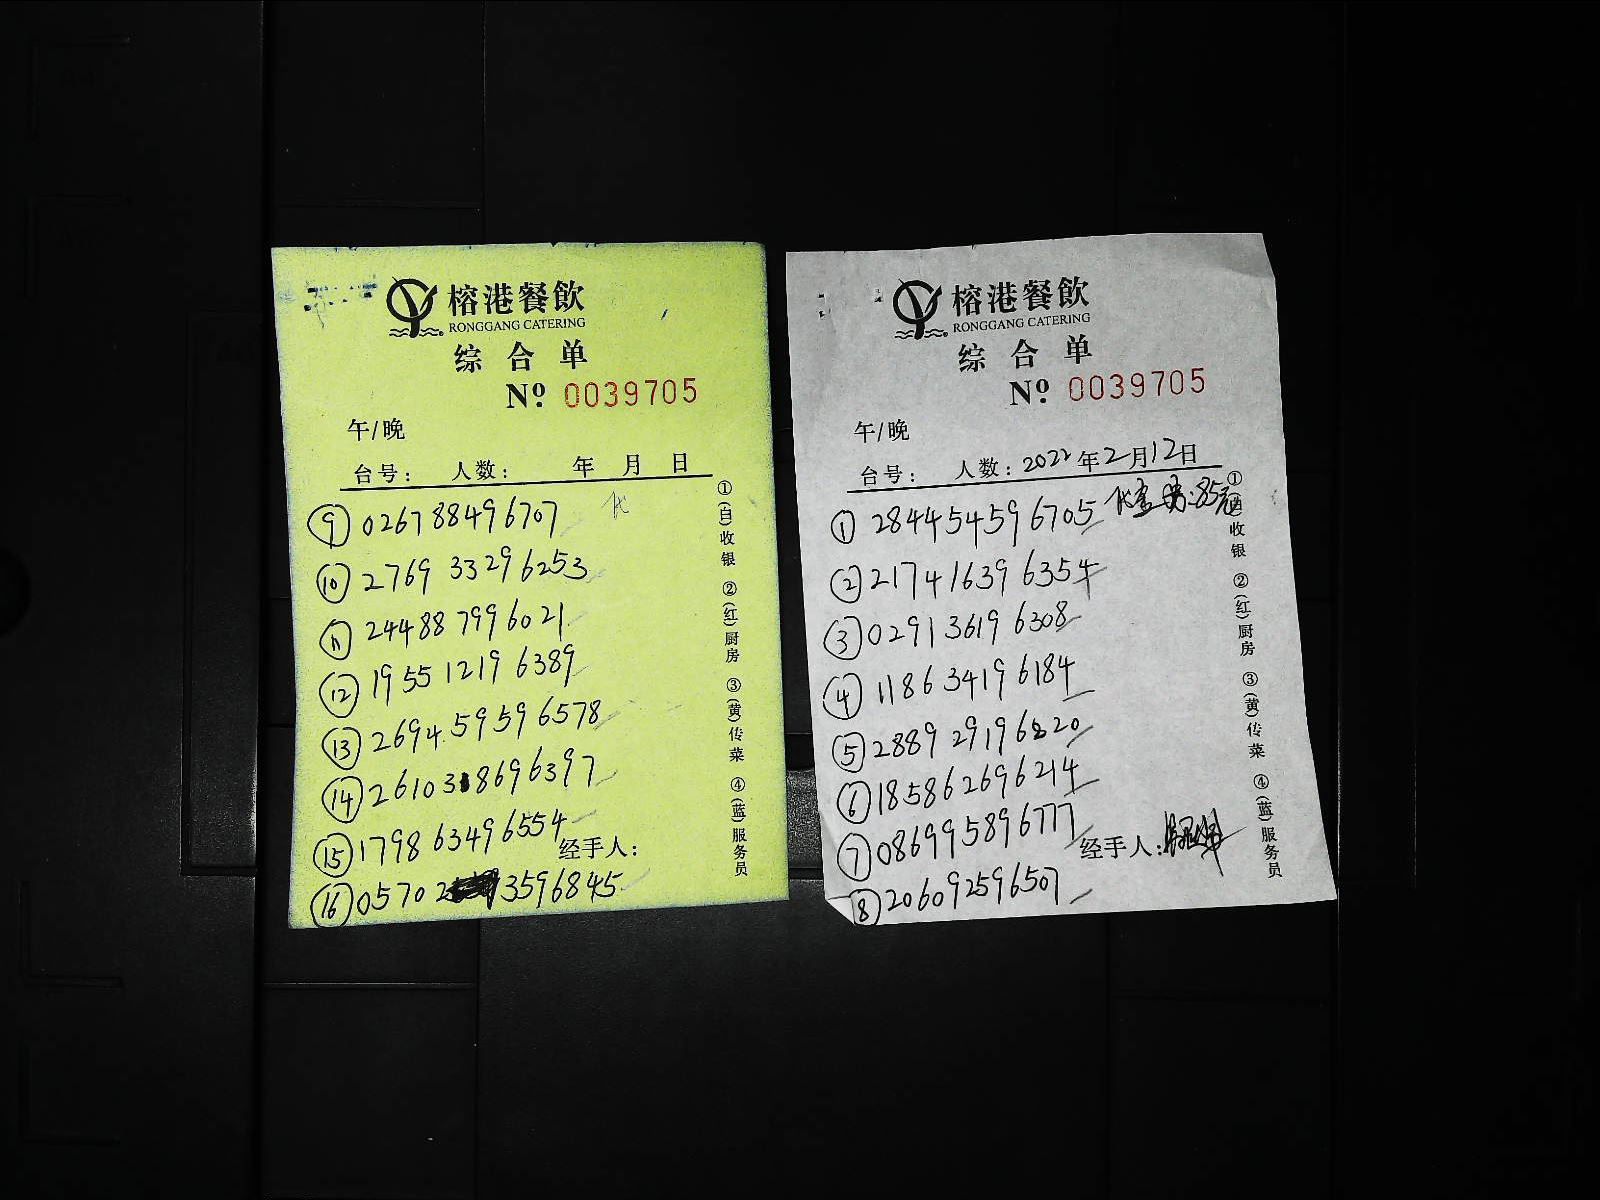 榕港餐飲
RONGGANG CATERING
综合单
Nº 0039705
午/晚
台号： 人数： 年 月 日
⑨ 026788496707
⑩ 2769 33296253
⑪ 24488 7996021
⑫ 1955 1219 6389
⑬ 2694 59596578
⑭ 261038696397
⑮ 1798 63496554
经手人：
⑯ 05702 3596845
①(白)收银 ②(红)厨房 ③(黄)传菜 ④(蓝)服务员
榕港餐飲
RONGGANG CATERING
综合单
Nº 0039705
午/晚
台号： 人数： 2022年2月12日
① 284454596705 :85元
② 217416396354
③ 029136196308
④ 118634196184
⑤ 2889 29196220
⑥ 185862696214
⑦ 086995896777
经手人：
⑧ 206092596507
①(白)收银 ②(红)厨房 ③(黄)传菜 ④(蓝)服务员